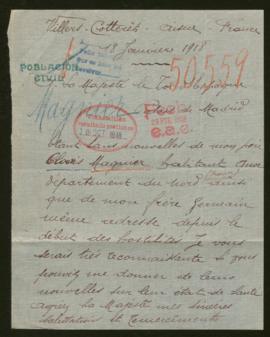 Villers-Cotterêts Aisne France
18 Janvier 1918
POBLACIÓN
CIVIL
50559
Sa Majesté le Roi d'Espagne
Magnier Palais de Madrid
Etant sans nouvelles de mon père
Clovis Magnier habitant
département du Nord ainsi
que de mon frère Germain
même adresse depuis le
début des hostilités je vous
serais très reconnaissante si vous
pouviez me donner de leurs
nouvelles sur leur état de santé
Agréez Sa Majesté mes sincères
salutations et remerciements